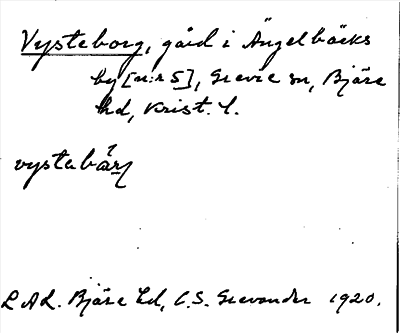 Vysteborg, gård i Ängelbäcks
by [n:r 5], Grevie sn, Bjäre
hd, Krist. l.
L A L. Bjäre hd, C.S. Grevander 1920.